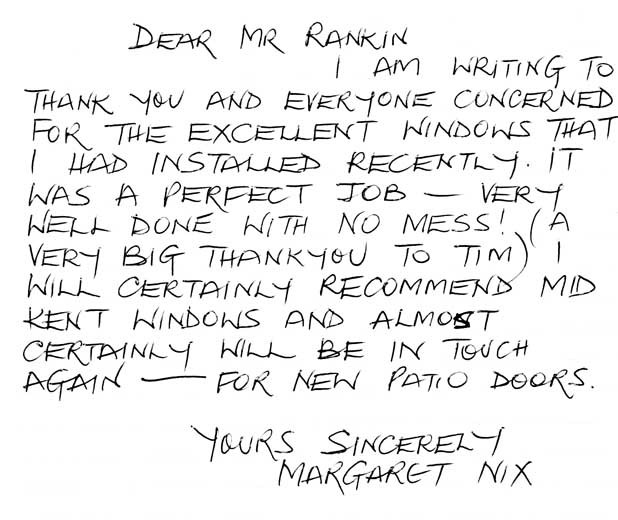 DEAR MR RANKIN
I AM WRITING TO
THANK YOU AND EVERYONE CONCERNED
FOR THE EXCELLENT WINDOWS THAT
I HAD INSTALLED RECENTLY. IT
WAS A PERFECT JOB — VERY
WELL DONE WITH NO MESS! (A
VERY BIG THANKYOU TO TIM) I
WILL CERTAINLY RECOMMEND MID
KENT WINDOWS AND ALMOST
CERTAINLY WILL BE IN TOUCH
AGAIN — FOR NEW PATIO DOORS.
YOURS SINCERELY
MARGARET NIX